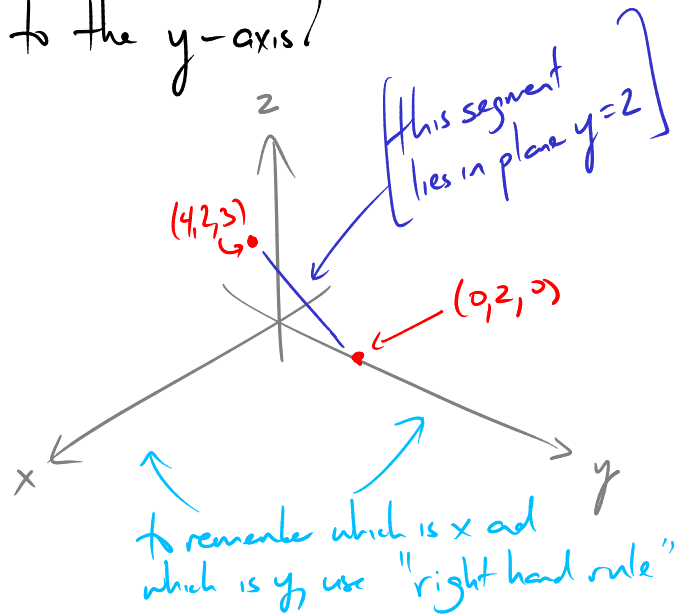 to the y-axis?
z
[this segment
lies in plane y=2]
(4,2,3)
(0,2,0)
x
y
to remember which is x ad
which is y, use "right hand rule"